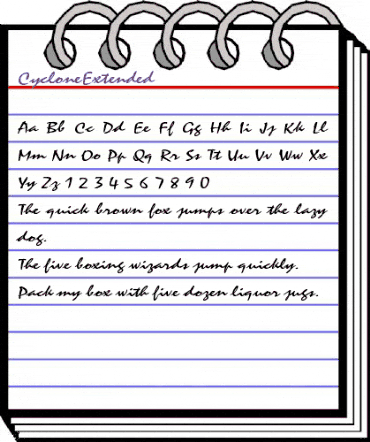 CycloneExtended
Aa Bb Cc Dd Ee Ff Gg Hh Ii Jj Kk Ll
Mm Nn Oo Pp Qq Rr Ss Tt Uu Vv Ww Xx
Yy Zz 1 2 3 4 5 6 7 8 9 0
The quick brown fox jumps over the lazy
dog.
The five boxing wizards jump quickly.
Pack my box with five dozen liquor jugs.